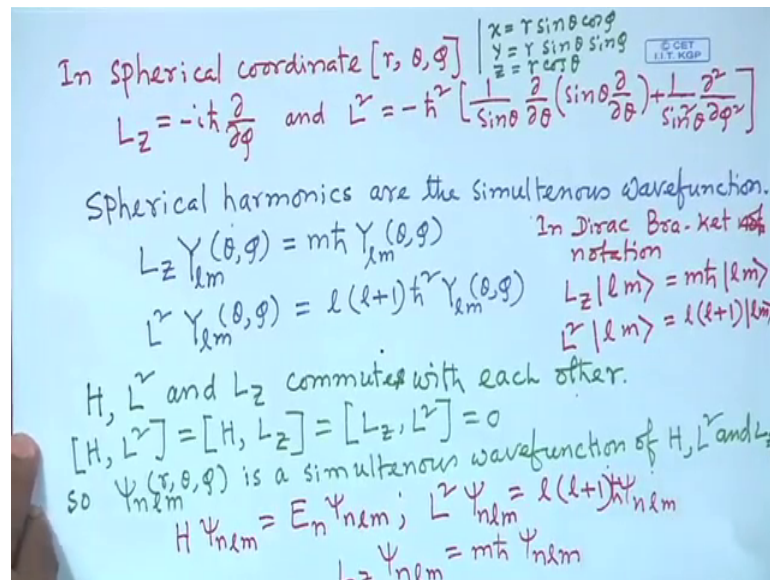 In spherical coordinate [r, θ, φ]
x = r sinθ cosφ
y = r sinθ sinφ
z = r cosθ
© CET
I.I.T. KGP
L_z = -iħ ∂/∂φ and L² = -ħ² [1/sinθ ∂/∂θ (sinθ ∂/∂θ) + 1/sin²θ ∂²/∂φ²]
Spherical harmonics are the simultenous wavefunction.
L_z Y_lm(θ,φ) = mħ Y_lm(θ,φ)
L² Y_lm(θ,φ) = l(l+1)ħ² Y_lm(θ,φ)
In Dirac Bra-ket
notation
L_z |lm⟩ = mħ |lm⟩
L² |lm⟩ = l(l+1)|lm⟩
H, L² and L_z commutes with each other.
[H, L²] = [H, L_z] = [L_z, L²] = 0
so Ψ_nlm(r,θ,φ) is a simultenous wavefunction of H, L² and L_z
H Ψ_nlm = E_n Ψ_nlm ; L² Ψ_nlm = l(l+1)ħ²Ψ_nlm
L_z Ψ_nlm = mħ Ψ_nlm